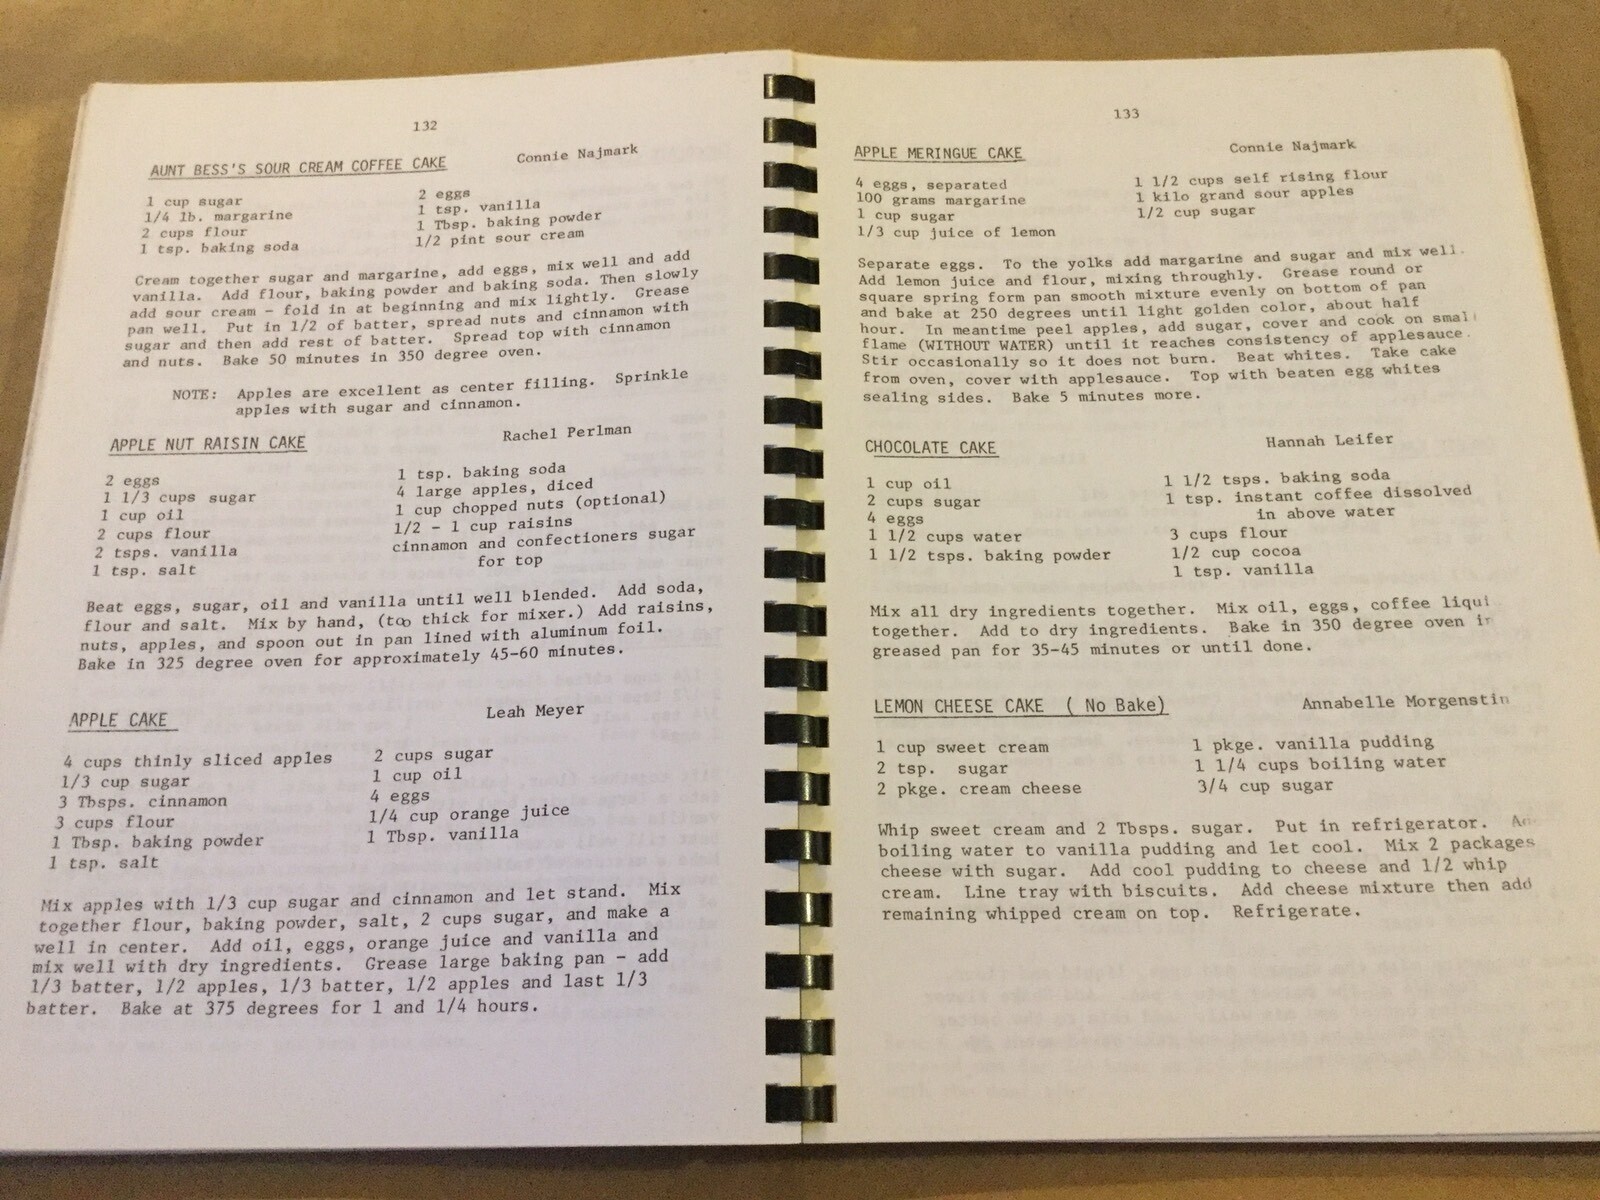 132
AUNT BESS'S SOUR CREAM COFFEE CAKE Connie Najmark
1 cup sugar
1/4 lb. margarine
2 cups flour
1 tsp. baking soda
2 eggs
1 tsp. vanilla
1 Tbsp. baking powder
1/2 pint sour cream
Cream together sugar and margarine, add eggs, mix well and add
vanilla. Add flour, baking powder and baking soda. Then slowly
add sour cream - fold in at beginning and mix lightly. Grease
pan well. Put in 1/2 of batter, spread nuts and cinnamon with
sugar and then add rest of batter. Spread top with cinnamon
and nuts. Bake 50 minutes in 350 degree oven.
NOTE: Apples are excellent as center filling. Sprinkle
apples with sugar and cinnamon.
APPLE NUT RAISIN CAKE Rachel Perlman
2 eggs
1 1/3 cups sugar
1 cup oil
2 cups flour
2 tsps. vanilla
1 tsp. salt
1 tsp. baking soda
4 large apples, diced
1 cup chopped nuts (optional)
1/2 - 1 cup raisins
cinnamon and confectioners sugar
for top
Beat eggs, sugar, oil and vanilla until well blended. Add soda,
flour and salt. Mix by hand, (too thick for mixer.) Add raisins,
nuts, apples, and spoon out in pan lined with aluminum foil.
Bake in 325 degree oven for approximately 45-60 minutes.
APPLE CAKE Leah Meyer
4 cups thinly sliced apples
1/3 cup sugar
3 Tbsps. cinnamon
3 cups flour
1 Tbsp. baking powder
1 tsp. salt
2 cups sugar
1 cup oil
4 eggs
1/4 cup orange juice
1 Tbsp. vanilla
Mix apples with 1/3 cup sugar and cinnamon and let stand. Mix
together flour, baking powder, salt, 2 cups sugar, and make a
well in center. Add oil, eggs, orange juice and vanilla and
mix well with dry ingredients. Grease large baking pan - add
1/3 batter, 1/2 apples, 1/3 batter, 1/2 apples and last 1/3
batter. Bake at 375 degrees for 1 and 1/4 hours.
133
APPLE MERINGUE CAKE Connie Najmark
4 eggs, separated
100 grams margarine
1 cup sugar
1/3 cup juice of lemon
1 1/2 cups self rising flour
1 kilo grand sour apples
1/2 cup sugar
Separate eggs. To the yolks add margarine and sugar and mix well.
Add lemon juice and flour, mixing throughly. Grease round or
square spring form pan smooth mixture evenly on bottom of pan
and bake at 250 degrees until light golden color, about half
hour. In meantime peel apples, add sugar, cover and cook on small
flame (WITHOUT WATER) until it reaches consistency of applesauce.
Stir occasionally so it does not burn. Beat whites. Take cake
from oven, cover with applesauce. Top with beaten egg whites
sealing sides. Bake 5 minutes more.
CHOCOLATE CAKE Hannah Leifer
1 cup oil
2 cups sugar
4 eggs
1 1/2 cups water
1 1/2 tsps. baking powder
1 1/2 tsps. baking soda
1 tsp. instant coffee dissolved
in above water
3 cups flour
1/2 cup cocoa
1 tsp. vanilla
Mix all dry ingredients together. Mix oil, eggs, coffee liqui
together. Add to dry ingredients. Bake in 350 degree oven in
greased pan for 35-45 minutes or until done.
LEMON CHEESE CAKE ( No Bake) Annabelle Morgenstin
1 cup sweet cream
2 tsp. sugar
2 pkge. cream cheese
1 pkge. vanilla pudding
1 1/4 cups boiling water
3/4 cup sugar
Whip sweet cream and 2 Tbsps. sugar. Put in refrigerator.
boiling water to vanilla pudding and let cool. Mix 2 packages
cheese with sugar. Add cool pudding to cheese and 1/2 whip
cream. Line tray with biscuits. Add cheese mixture then add
remaining whipped cream on top. Refrigerate.